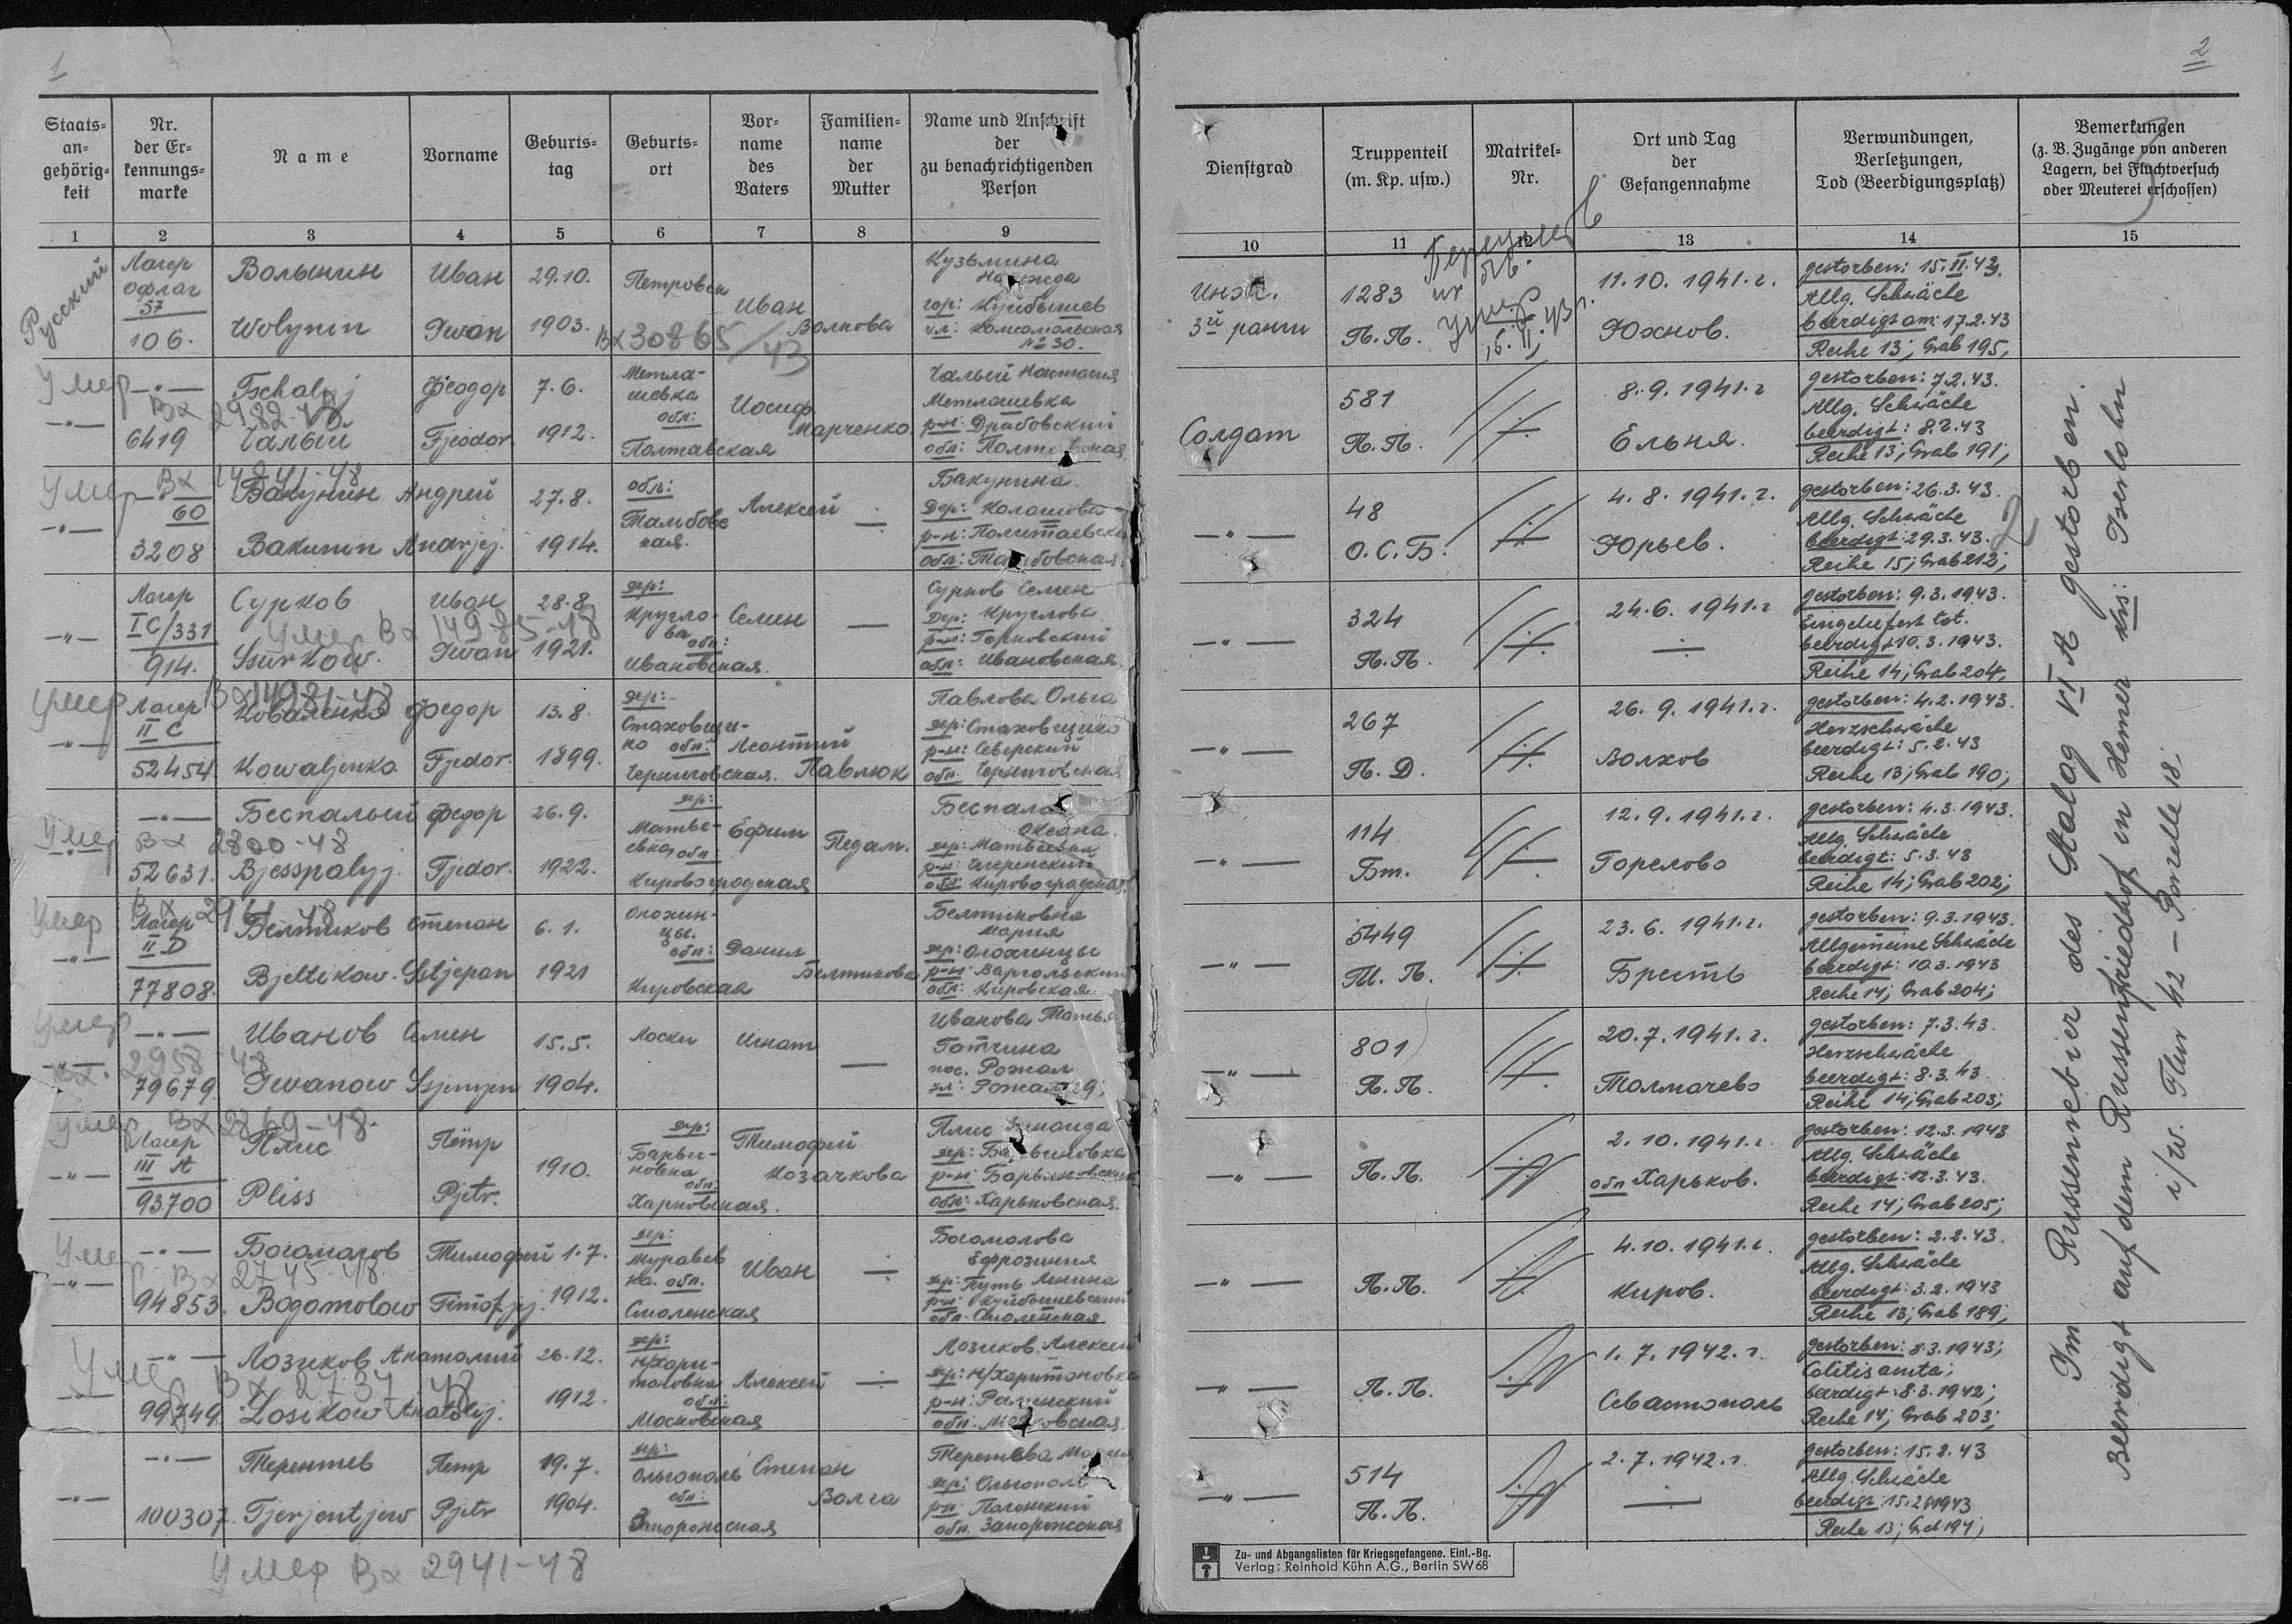 1
Staats-
an-
gehörig-
keit
Nr.
der Er-
kennungs-
marke
Name
Vorname
Geburts-
tag
Geburts-
ort
Vor-
name
des
Vaters
Familien-
name
der
Mutter
Name und Anschrift
der
zu benachrichtigenden
Person
1 2 3 4 5 6 7 8 9
Русский
Лагер
офлаг
57
106.
Волынин
Wolynin
Иван
Iwan
29.10.
1903.
Петровск
Вх 30865/43
Иван
Волкова
Кузьмина
Надежда
гор: Куйбышев
ул: Комсомольская
№ 30.
Умер
Вх 2982-48
6419
Tschalyj
Чалый
Феодор
Fjeodor
7.6.
1912.
Метла-
шевка
обл:
Полтавская
Иосиф
Марченко
Чалый Настасия
Метлашевка
р-н: Драбовский
обл: Полтавская
Умер Вх 14941-48
60
3208
Бакунин
Bakunin
Андрей
Andrjej.
27.8.
1914.
обл:
Тамбовс
кая.
Алексей
Бакунина
Дер:
р-н:
обл: Тамбовская
Лагер
IC/331
914.
Сурков
Умер Вх 14985-48
Ssurkow.
Иван
Iwan
28.8
1921.
дер:
Кругло-
ва
обл:
Ивановская.
Семен
Сурков Семен
Дер: Круглова
р-н: Горковский
обл: Ивановская
умер Вх 14981-48
Лагер
II C
52454
Коваленко
Kowaljenko
Федор
Fjedor.
13.8.
1899.
дер:
Стаховщи-
ко обл:
Черниговская.
Леонтий
Павлюк
Павлова Ольга
дер: Стаховщико
р-н: Северский
обл. Черниговская
Умер Вх 2800-48
52631.
Беспалый
Bjesspalyj.
Федор
Fjedor.
26.9.
1922.
дер:
Матве-
евка, обл:
Кировоградская
Ефим
Педам.
Беспала
Оксана.
дер: Матвеевка
р-н:
обл: Кировоградская.
Умер Вх
Лагер
II D
77808.
Белтиков
Bjeltikow.
Степан
Sstjepan
6.1.
1921
Оложин-
цы.
обл:
Кировская
Данил
Белтикова
Белтиковна
Мария
дер: Оложинцы
р-н:
обл: Кировская.
Умер
Вх. 2958 48
79679
Иванов
Iwanow
Семен
Ssjemjen
15.5.
1904.
Лоски
Игнат
Иванова
Гатчина
пос. Рожал
ул:
Умер Вх 2869-48.
Лагер
III A
93700
Плис
Pliss
Пётр
Pjetr.
1910.
дер:
Барви-
новка
обл.
Харковская.
Тимофей
Козачкова
Плис Зинаида
дер: Барвиновка
р-н:
обл: Харьковская.
Умер Вх 2745-48
94853.
Богомолов
Bogomolow
Тимофей
Timofjej.
1.7.
1912.
дер:
Муравев
ка. обл.
Смоленская
Иван
Богомолова
Ефрозиния
дер: Путь Ленина
р-н: Куйбышевский
обл. Смоленская
Умер Вх 2737 48
99749.
Лозиков
Losikow
Анатолий
Anatolij.
26.12.
1912.
дер:
Н/Хари-
тоновка
обл:
Московская
Алексей
Лозиков Алексей
дер: Н/Харитоновка
р-н: Раменский
обл. Московская.
100307.
Терентев
Tjerjentjew
Петр
Pjetr
19.7.
1904.
дер:
Ольгополь
обл:
Запорожская
Степан
Волга
Терентева Мария
дер: Ольгополь
р-н:
обл. Запорожская
Умер Вх 2941-48
2
Dienstgrad
Truppenteil
(m. Kp. usw.)
Matrikel-
Nr.
Ort und Tag
der
Gefangennahme
Verwundungen,
Verletzungen,
Tod (Beerdigungsplatz)
Bemerkungen
(z. B. Zugänge von anderen
Lagern, bei Fluchtversuch
oder Meuterei erschossen)
10 11 12 13 14 15
Инж.
3й ранги
1283
П.П.
11.10.1941.г.
Юхнов.
gestorben: 15.II.43.
Allg. Schwäche
beerdigt am: 17.2.43
Reihe 13; Grab 195,
Солдат
581
П.П.
8.9.1941.г
Ельня.
gestorben: 7.2.43.
Allg. Schwäche
beerdigt: 8.2.43
Reihe 13; Grab 191;
48
О.С.Б.
4.8.1941.г.
Юрьев.
gestorben: 26.3.43.
Allg. Schwäche
beerdigt: 29.3.43.
Reihe 15; Grab 212;
324
П.П.
24.6.1941.г
gestorben: 9.3.1943.
Eingeliefert tot.
beerdigt 10.3.1943.
Reihe 14; Grab 204,
267
П.Д.
26.9.1941.г.
Волхов
gestorben: 4.2.1943.
Herzschwäche
beerdigt: 5.2.43
Reihe 13; Grab 190;
114
Бт.
12.9.1941.г.
Горелово
gestorben: 4.3.1943.
Allg. Schwäche
beerdigt: 5.3.43
Reihe 14; Grab 202;
5449
Т. П.
23.6.1941.г.
Бресть
gestorben: 9.3.1943.
Allgemeine Schwäche
beerdigt: 10.3.1943
Reihe 14; Grab 204;
801
П.П.
20.7.1941.г.
Толмачево
gestorben: 7.3.43.
Herzschwäche
beerdigt: 8.3.43
Reihe 14; Grab 203;
П.П.
2.10.1941.г.
обл Харьков.
gestorben: 12.3.1943
Allg. Schwäche
beerdigt: 12.3.43.
Reihe 14; Grab 205;
П.П.
4.10.1941.г.
Киров.
gestorben: 2.2.43.
Allg. Schwäche
beerdigt: 3.2.1943
Reihe 13; Grab 189;
П.П.
1.7.1942.г.
Севастополь
gestorben: 8.3.1943;
Colitis
beerdigt: 8.3.1942;
Reihe 14; Grab 203;
514
П.П.
2.7.1942.г.
gestorben: 15.2.43
Allg. Schwäche
beerdigt 15.2.1943
Reihe 13; Grab 194;
Im Russenrevier des Stalag VI A gestorben.
Beerdigt auf dem Russenfriedhof in Hemer Krs: Iserlohn
i/w. Flur 42 – Parzelle 18.
Zu- und Abgangslisten für Kriegsgefangene. Einl.-Bg.
Verlag: Reinhold Kühn A.G., Berlin SW 68